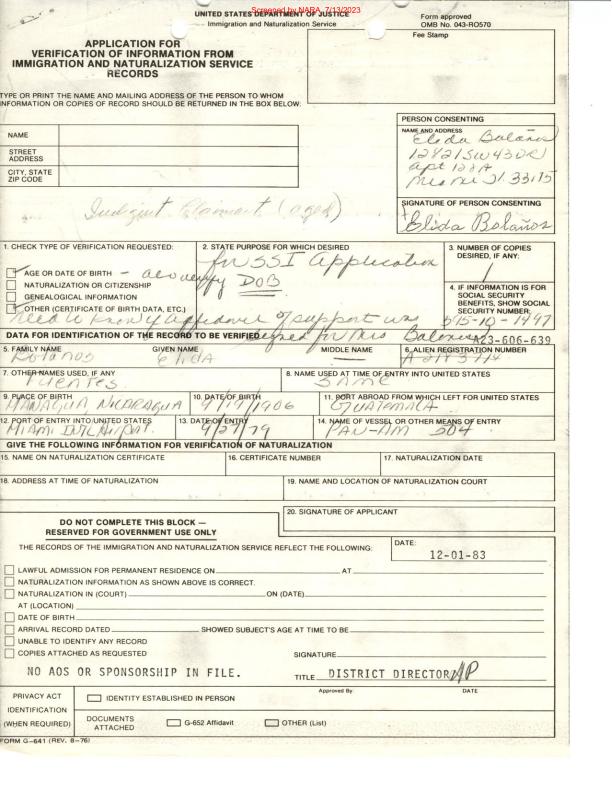 Screened by NARA, 7/13/2023
UNITED STATES DEPARTMENT OF JUSTICE
Immigration and Naturalization Service
Form approved
OMB No. 043-RO570
Fee Stamp
APPLICATION FOR
VERIFICATION OF INFORMATION FROM
IMMIGRATION AND NATURALIZATION SERVICE
RECORDS
TYPE OR PRINT THE NAME AND MAILING ADDRESS OF THE PERSON TO WHOM
INFORMATION OR COPIES OF RECORD SHOULD BE RETURNED IN THE BOX BELOW:
NAME
STREET
ADDRESS
CITY, STATE
ZIP CODE
PERSON CONSENTING
NAME AND ADDRESS
Elida Bolaños
12421 SW 43 DR
apt 128A
33175
SIGNATURE OF PERSON CONSENTING
Elida Bolaños
Indigent Claimant (aged)
1. CHECK TYPE OF VERIFICATION REQUESTED:
AGE OR DATE OF BIRTH - also verify DOB
NATURALIZATION OR CITIZENSHIP
GENEALOGICAL INFORMATION
OTHER (CERTIFICATE OF BIRTH DATA, ETC.)
2. STATE PURPOSE FOR WHICH DESIRED
for SSI Application
3. NUMBER OF COPIES
DESIRED, IF ANY:
1
4. IF INFORMATION IS FOR
SOCIAL SECURITY
BENEFITS, SHOW SOCIAL
SECURITY NUMBER:
595-10-1497
Need to know if affidavit of support was signed for Mrs Bolanos
DATA FOR IDENTIFICATION OF THE RECORD TO BE VERIFIED
A23-606-639
5. FAMILY NAME GIVEN NAME MIDDLE NAME
Bolanos Elida
6. ALIEN REGISTRATION NUMBER
7. OTHER NAMES USED, IF ANY
Fuentes
8. NAME USED AT TIME OF ENTRY INTO UNITED STATES
SAME
9. PLACE OF BIRTH
MANAGUA, NICARAGUA
10. DATE OF BIRTH
9/19/1906
11. PORT ABROAD FROM WHICH LEFT FOR UNITED STATES
GUATEMALA
12. PORT OF ENTRY INTO UNITED STATES
MIAMI INTL AIRPORT
13. DATE OF ENTRY
9/27/79
14. NAME OF VESSEL OR OTHER MEANS OF ENTRY
PAN-AM 504
GIVE THE FOLLOWING INFORMATION FOR VERIFICATION OF NATURALIZATION
15. NAME ON NATURALIZATION CERTIFICATE
16. CERTIFICATE NUMBER
17. NATURALIZATION DATE
18. ADDRESS AT TIME OF NATURALIZATION
19. NAME AND LOCATION OF NATURALIZATION COURT
20. SIGNATURE OF APPLICANT
DO NOT COMPLETE THIS BLOCK —
RESERVED FOR GOVERNMENT USE ONLY
THE RECORDS OF THE IMMIGRATION AND NATURALIZATION SERVICE REFLECT THE FOLLOWING:
DATE:
12-01-83
LAWFUL ADMISSION FOR PERMANENT RESIDENCE ON AT
NATURALIZATION INFORMATION AS SHOWN ABOVE IS CORRECT.
NATURALIZATION IN (COURT) ON (DATE)
AT (LOCATION)
DATE OF BIRTH
ARRIVAL RECORD DATED SHOWED SUBJECT'S AGE AT TIME TO BE
UNABLE TO IDENTIFY ANY RECORD
COPIES ATTACHED AS REQUESTED
SIGNATURE
NO AOS OR SPONSORSHIP IN FILE.
TITLE DISTRICT DIRECTOR AP
PRIVACY ACT
IDENTIFICATION
(WHEN REQUIRED)
IDENTITY ESTABLISHED IN PERSON
Approved By
DATE
DOCUMENTS
ATTACHED
G-652 Affidavit
OTHER (List)
FORM G-641 (REV. 8-76)